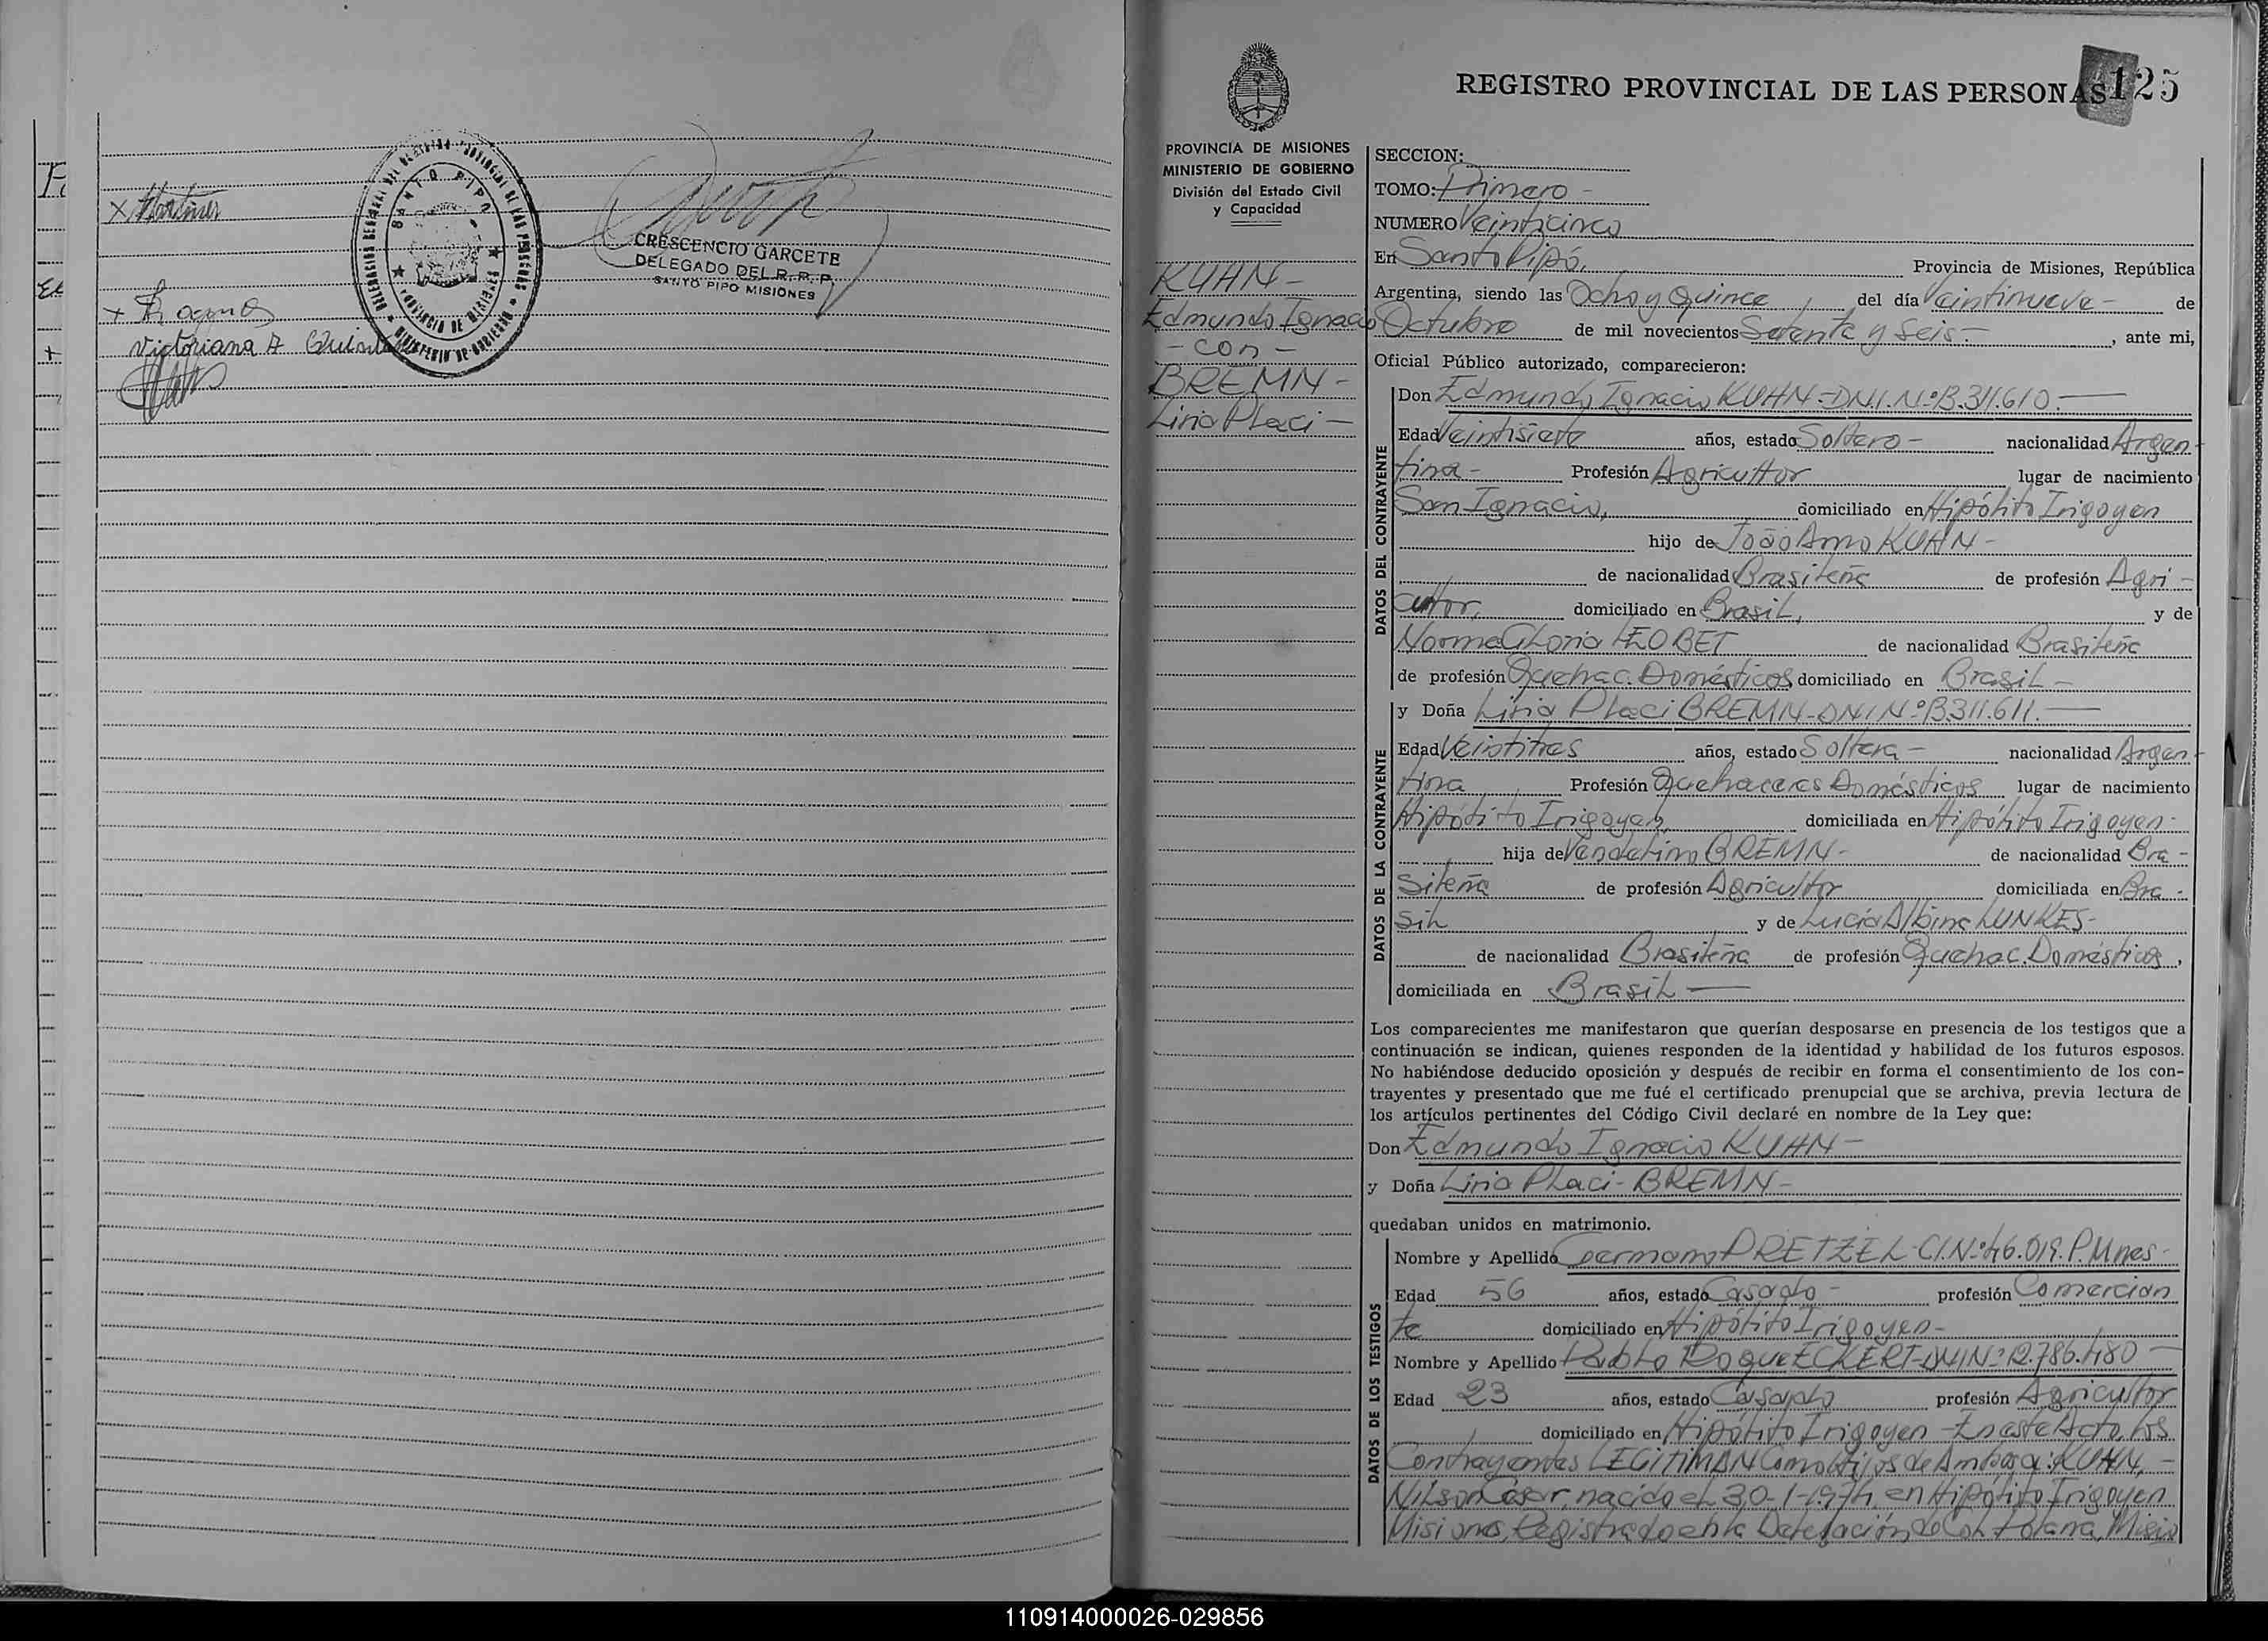 x Martinez
+ Ramos
Victoriana A
SANTO PIPO
PROVINCIA DE MISIONES
MINISTERIO DE GOBIERNO
CRESCENCIO GARCETE
DELEGADO DEL R. P. P.
SANTO PIPO MISIONES
REGISTRO PROVINCIAL DE LAS PERSONAS
125
PROVINCIA DE MISIONES
MINISTERIO DE GOBIERNO
División del Estado Civil
y Capacidad
KUHN-
Edmundo Ignacio
- con -
BREMN-
Liria Placi-
SECCION:
TOMO: Primero-
NUMERO Veinticinco
En Santo Pipó, Provincia de Misiones, República
Argentina, siendo las Ocho y Quince, del día Veintinueve- de
Octubre de mil novecientos Setenta y Seis.-, ante mi,
Oficial Público autorizado, comparecieron:
DATOS DEL CONTRAYENTE
Don Edmundo Ignacio KUHN-DNI.Nº 13.311.610.-
Edad Veintisiete años, estado Soltero- nacionalidad Argen-
tina- Profesión Agricultor lugar de nacimiento
San Ignacio, domiciliado en Hipólito Irigoyen
hijo de João Arno KUHN-
de nacionalidad Brasileña de profesión Agri-
cultor, domiciliado en Brasil, y de
Norma Gloria LEOBET de nacionalidad Brasileña
de profesión Quehac. Domésticos domiciliado en Brasil-
DATOS DE LA CONTRAYENTE
y Doña Liria Placi BREMN-DNI Nº 13.311.611.-
Edad Veintitres años, estado Soltera- nacionalidad Argen-
tina Profesión Quehaceres Domésticos lugar de nacimiento
Hipólito Irigoyen, domiciliada en Hipólito Irigoyen-
hija de Vendelino BREMN- de nacionalidad Bra-
sileña de profesión Agricultor domiciliada en Bra-
sil y de Lucia Albina LUNKES-
de nacionalidad Brasileña de profesión Quehac. Domésticos,
domiciliada en Brasil-
Los comparecientes me manifestaron que querían desposarse en presencia de los testigos que a
continuación se indican, quienes responden de la identidad y habilidad de los futuros esposos.
No habiéndose deducido oposición y después de recibir en forma el consentimiento de los con-
trayentes y presentado que me fué el certificado prenupcial que se archiva, previa lectura de
los artículos pertinentes del Código Civil declaré en nombre de la Ley que:
Don Edmundo Ignacio KUHN-
y Doña Liria Placi- BREMN-
quedaban unidos en matrimonio.
DATOS DE LOS TESTIGOS
Nombre y Apellido Germano PRETZEL-CI.Nº 46.019.P.Mnes-
Edad 56 años, estado Casado- profesión Comercian
te domiciliado en Hipólito Irigoyen-
Nombre y Apellido Pablo Roque ECKERT-DNI Nº 12.786.480-
Edad 23 años, estado Casado profesión Agricultor
domiciliado en Hipólito Irigoyen- En este Acto, los
Contrayentes LEGITIMAN como hijos de Ambos a: KUHN,-
Nilson Cesar, nacido el 30-1-1974, en Hipólito Irigoyen
Misiones, Registrado en la Delegación de Col. Polana, Misio
110914000026-029856